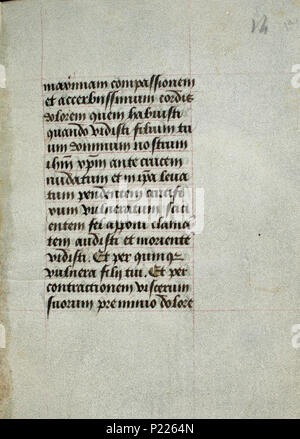 14
maximam compassionem
et accerbissimum cordis
dolorem quem habuisti
quando vidisti filium tu
um dominum nostrum
ihm xpm ante crucem
nudatum et in ipa leva
tum pendentem crucifi
xum vulneratum siti
entem fel apponi clama
tem audisti et moriente
vidisti. Et per quinqz
vulnera filii tui. Et per
contractionem viscerum
suorum pre nimio dolore
alamy
P2264N